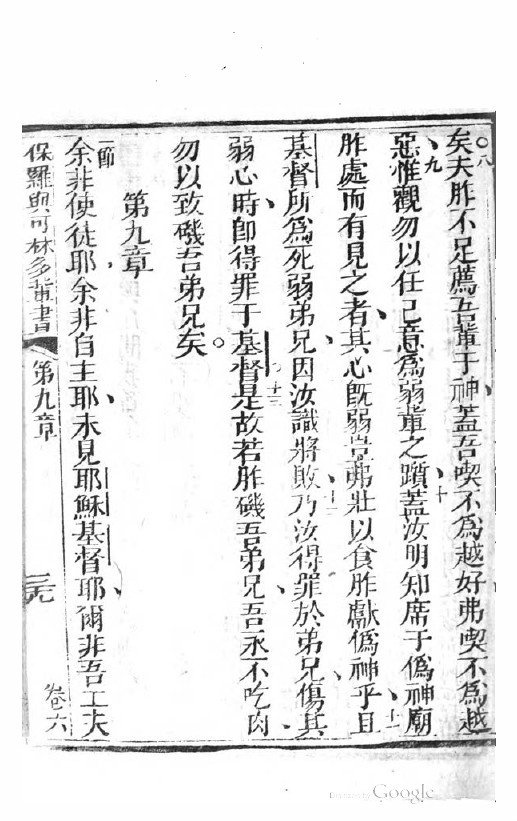 八
矣夫胙不足薦吾輩于神蓋吾喫不為越好弗喫不為越
九
惡惟觀勿以任己意為弱輩之躓蓋汝明知席于偽神廟
十
胙處而有見之者其心既弱豈弗壯以食胙獻偽神乎且
十一
基督所為死弱弟兄因汝識將敗乃汝得罪於弟兄傷其
十二
弱心時卽得罪于基督是故若胙礙吾弟兄吾永不吃肉
十三
勿以致礙吾弟兄矣
第九章
一節
余非使徒耶余非自主耶未見耶穌基督耶爾非吾工夫
保羅與可林多輩書
第九章
卷六
Google